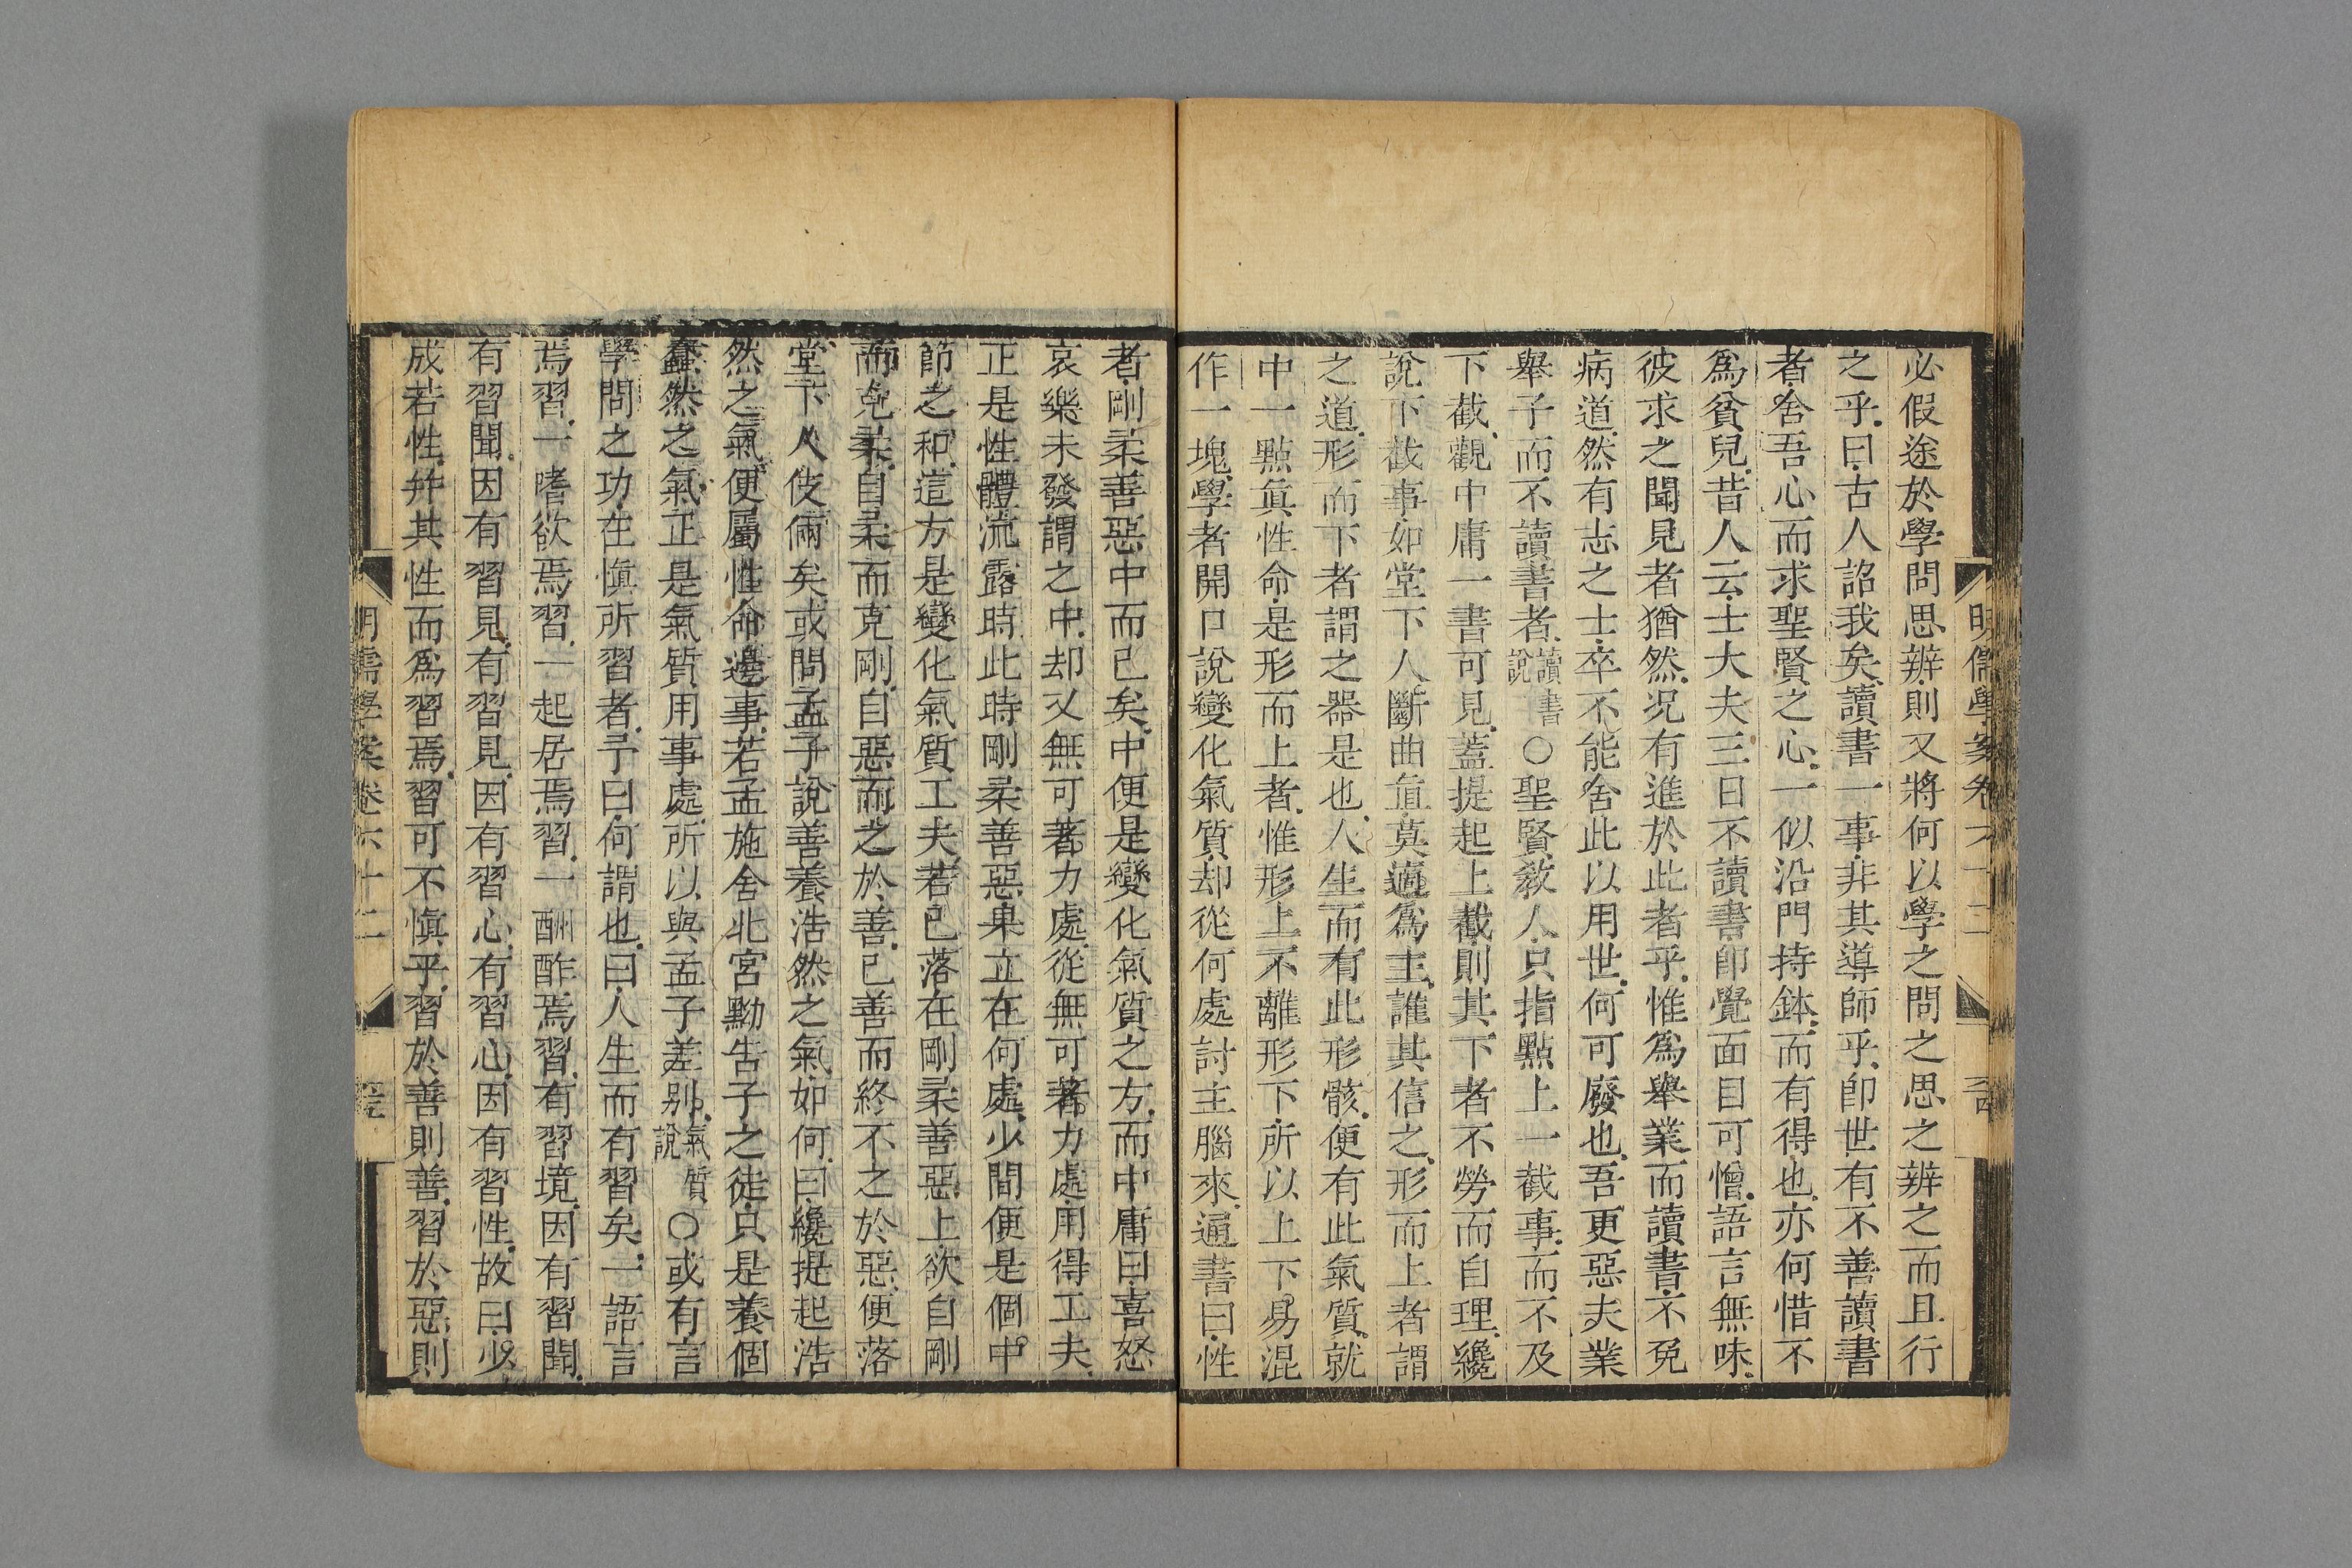 明儒學案卷六十二
必假途於學問思辨則又將何以學之問之思之辨之而且行
之乎曰古人詔我矣讀書一事非其導師乎卽世有不善讀書
者舍吾心而求聖賢之心一似沿門持鉢而有得也亦何惜不
爲貧兒昔人云士大夫三日不讀書卽覺面目可憎語言無味
彼求之聞見者猶然况有進於此者乎惟爲舉業而讀書不免
病道然有志之士卒不能舍此以用世何可廢也吾更惡夫業
舉子而不讀書者讀書說○聖賢敎人只指點上一截事而不及
下截觀中庸一書可見蓋提起上截則其下者不勞而自理纔
說下截事如堂下人斷曲直莫適爲主誰其信之形而上者謂
之道形而下者謂之器是也人生而有此形骸便有此氣質就
中一點眞性命是形而上者惟形上不離形下所以上下易混
作一塊學者開口說變化氣質却從何處討主腦來通書曰性
者剛柔善惡中而已矣中便是變化氣質之方而中庸曰喜怒
哀樂未發謂之中却又無可著力處從無可著力處用得工夫
正是性體流露時此時剛柔善惡果立在何處少間便是個中
節之和這方是變化氣質工夫若已落在剛柔善惡上欲自剛
而克柔自柔而克剛自惡而之於善已善而終不之於惡便落
堂下人伎倆矣或問孟子說善養浩然之氣如何曰纔提起浩
然之氣便屬性命邊事若孟施舍北宮黝告子之徒只是養個
蠢然之氣正是氣質用事處所以與孟子差別氣質說○或有言
學問之功在愼所習者予曰何謂也曰人生而有習矣一語言
焉習一嗜欲焉習一起居焉習一酬酢焉習有習境因有習聞
有習聞因有習見有習見因有習心有習心因有習性故曰少
成若性幷其性而爲習焉習可不愼乎習於善則善習於惡則
明儒學案卷六十二